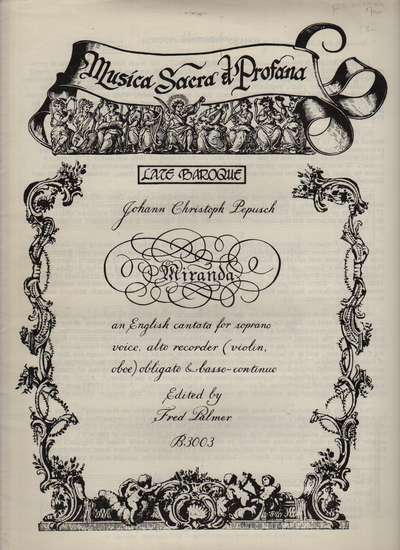 Musica Sacra et Profana
LATE BAROQUE
Johann Christoph Pepusch
Miranda
an English cantata for soprano
voice, alto recorder (violin,
oboe) obligato & basso-continuo
Edited by
Fred Palmer
B.3003